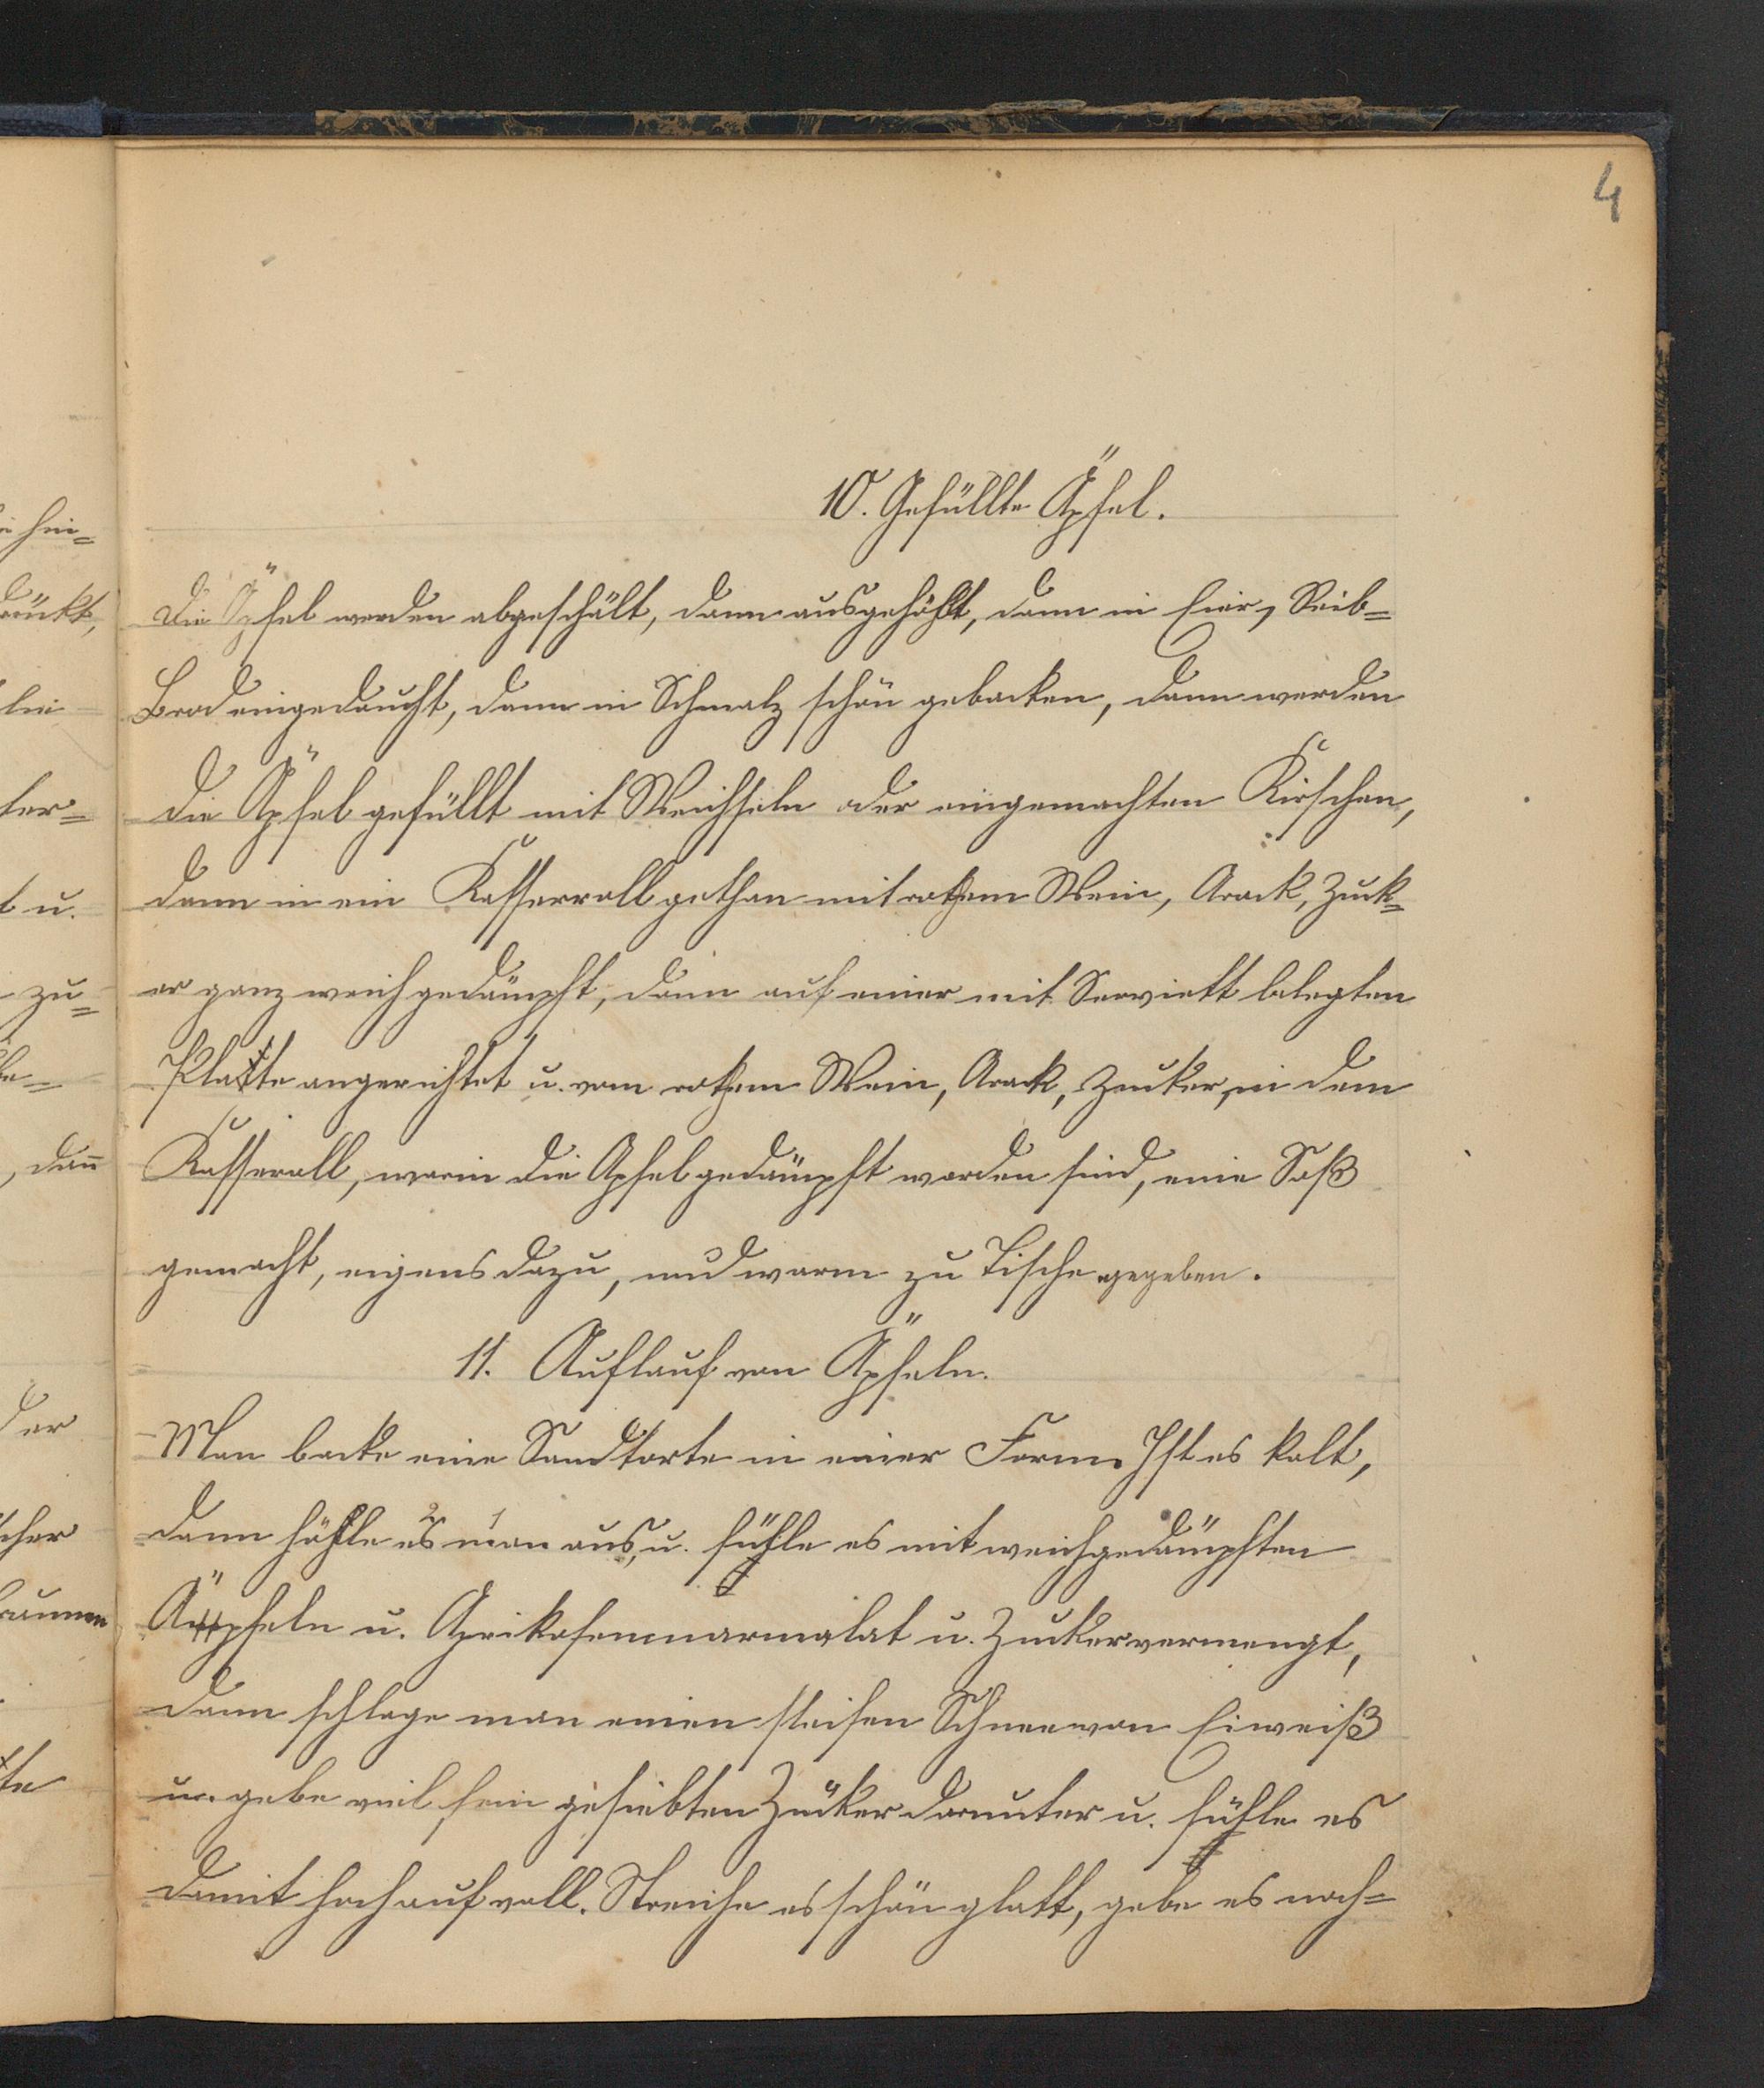 4
10. Gefüllte Äpfel.
Die Äpfel werden abgeschält, dann ausgehöhlt, dann in Eier, Reib=
Brod eingedaucht, dann in Schmalz schön gebacken, dann werden
die Äpfel gefüllt mit Weichseln oder eingemachten Kirschen,
dann in ein Kasserroll gethan mit rothem Wein, Arack, Zuck=
er ganz weich gedämpft, dann auf einer mit Serviett belegten
Platte angerichtet u. vom rothem Wein, Arack, Zucker, in dem
Kasseroll, worin die Apfel gedämpft worden sind, eine Soß
gemacht, eigens dazu, und warm zu Tische gegeben.
11. Auflauf von Äpfeln.
Man backe eine Sandtorte in einer Form. Ist es kalt,
dann höhle es man aus, u. fühle es mit weichgedämpften
Äpfeln u. Aprikosenmarmalat u. Zucker vermengt,
dann schlage man einen steifen Schnee von Eiweiß
u. gebe viel fein gesiebten Zucker darunter u. fühle es
damit hoch auf voll. Streiche es schön glatt, gebe es noch=
hin=
drückt,
ter=
t u.
zu=
, dañ
der
te